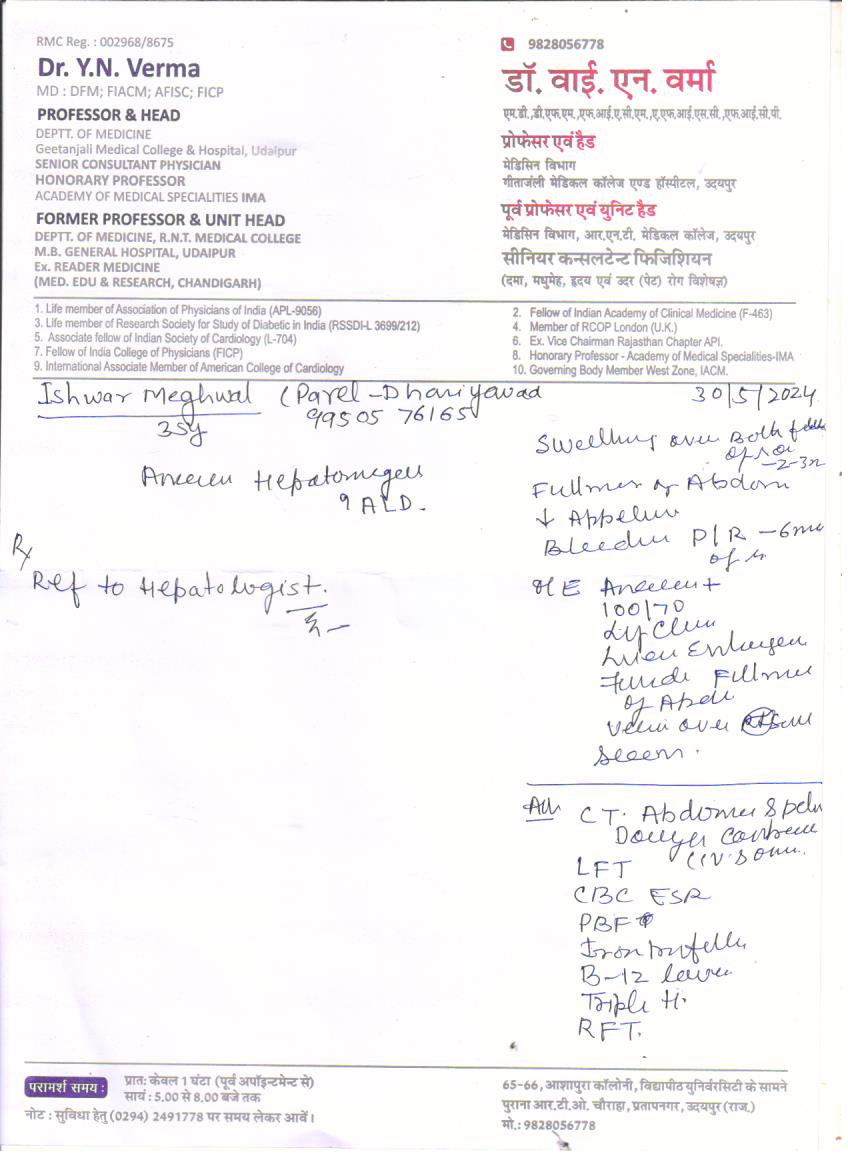 RMC Reg. : 002968/8675
Dr. Y.N. Verma
MD : DFM; FIACM; AFISC; FICP
PROFESSOR & HEAD
DEPTT. OF MEDICINE
Geetanjali Medical College & Hospital, Udaipur
SENIOR CONSULTANT PHYSICIAN
HONORARY PROFESSOR
ACADEMY OF MEDICAL SPECIALITIES IMA
FORMER PROFESSOR & UNIT HEAD
DEPTT. OF MEDICINE, R.N.T. MEDICAL COLLEGE
M.B. GENERAL HOSPITAL, UDAIPUR
Ex. READER MEDICINE
(MED. EDU & RESEARCH, CHANDIGARH)
9828056778
डॉ. वाई. एन. वर्मा
एम.डी.,डी.एफ.एम.,एफ.आई.ए.सी.एम.,ए.एफ.आई.एस.सी.,एफ.आई.सी.पी.
प्रोफेसर एवं हैड
मेडिसिन विभाग
गीतांजली मेडिकल कॉलेज एण्ड हॉस्पीटल, उदयपुर
पूर्व प्रोफेसर एवं युनिट हैड
मेडिसिन विभाग, आर.एन.टी. मेडिकल कॉलेज, उदयपुर
सीनियर कन्सलटेन्ट फिजिशियन
(दमा, मधुमेह, हृदय एवं उदर (पेट) रोग विशेषज्ञ)
1. Life member of Association of Physicians of India (APL-9056)
3. Life member of Research Society for Study of Diabetic in India (RSSDI-L 3699/212)
5. Associate fellow of Indian Society of Cardiology (L-704)
7. Fellow of India College of Physicians (FICP)
9. International Associate Member of American College of Cardiology
2. Fellow of Indian Academy of Clinical Medicine (F-463)
4. Member of RCOP London (U.K.)
6. Ex. Vice Chairman Rajasthan Chapter API.
8. Honorary Professor - Academy of Medical Specialities-IMA
10. Governing Body Member West Zone, IACM.
Ishwar Meghwal (Parel-Dhariyawad
35y 99505 76165
30/5/2024
Hepatomegaly
? ALD.
Rx
Ref to Hepatologist.
Swelling over Both
Fullness of Abdom
↓ Appetite
Bleeding P/R - 6
O/E
100/70
Liver Enlarged
Fullness
of Abdo
over
Adv C.T. Abdomen
LFT
CBC ESR
PBF
Iron profile
B-12 level
Triple H.
RFT.
परामर्श समय :
प्रात: केवल 1 घंटा (पूर्व अपॉइन्टमेन्ट से)
सायं : 5.00 से 8.00 बजे तक
नोट : सुविधा हेतु (0294) 2491778 पर समय लेकर आवें।
65-66, आशापुरा कॉलोनी, विद्यापीठ युनिर्वरसिटी के सामने
पुराना आर.टी.ओ. चौराहा, प्रतापनगर, उदयपुर (राज.)
मो.: 9828056778